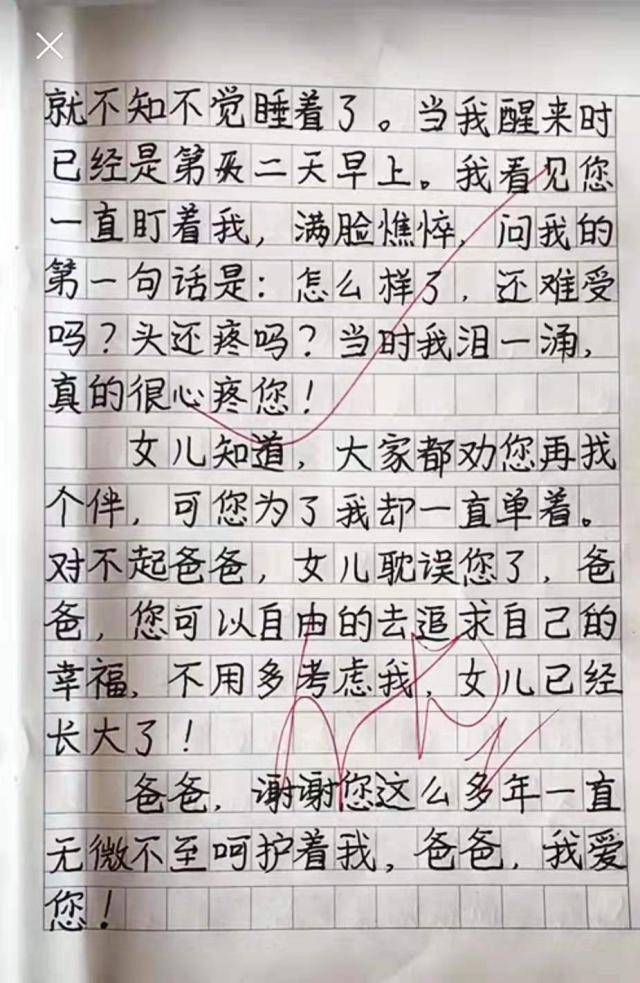 就不知不觉睡着了。当我醒来时
已经是第二天早上。我看见您
一直盯着我，满脸憔悴，问我的
第一句话是：怎么样了，还难受
吗？头还疼吗？当时我泪一涌，
真的很心疼您！
女儿知道，大家都劝您再找
个伴，可您为了我却一直单着。
对不起爸爸，女儿耽误您了，爸
爸，您可以自由的去追求自己的
幸福，不用多考虑我，女儿已经
长大了！
爸爸，谢谢您这么多年一直
无微不至呵护着我，爸爸，我爱
您！